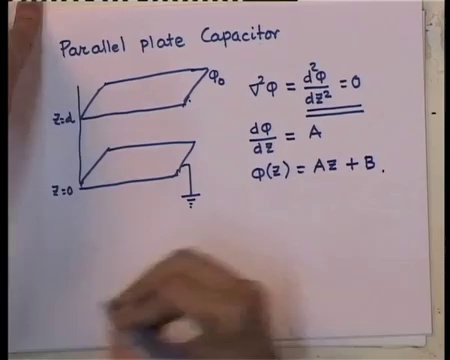 Parallel plate Capacitor
φ₀
∇²φ = d²φ/dz² = 0
z=d
dφ/dz = A
φ(z) = Az + B.
z=0